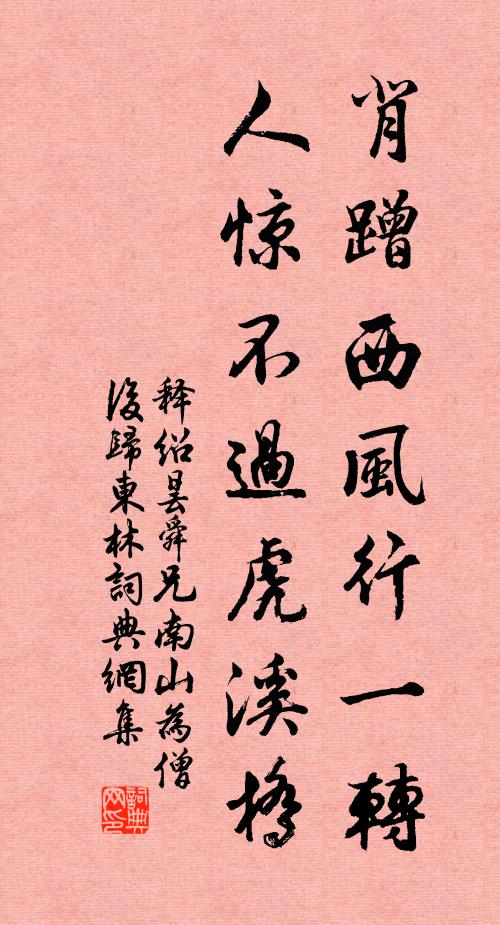 肯蹭西風行一轉
人惊不過虎溪橋
释绍曇舜兄南山為僧
後歸東林詞典網集
詞典網印